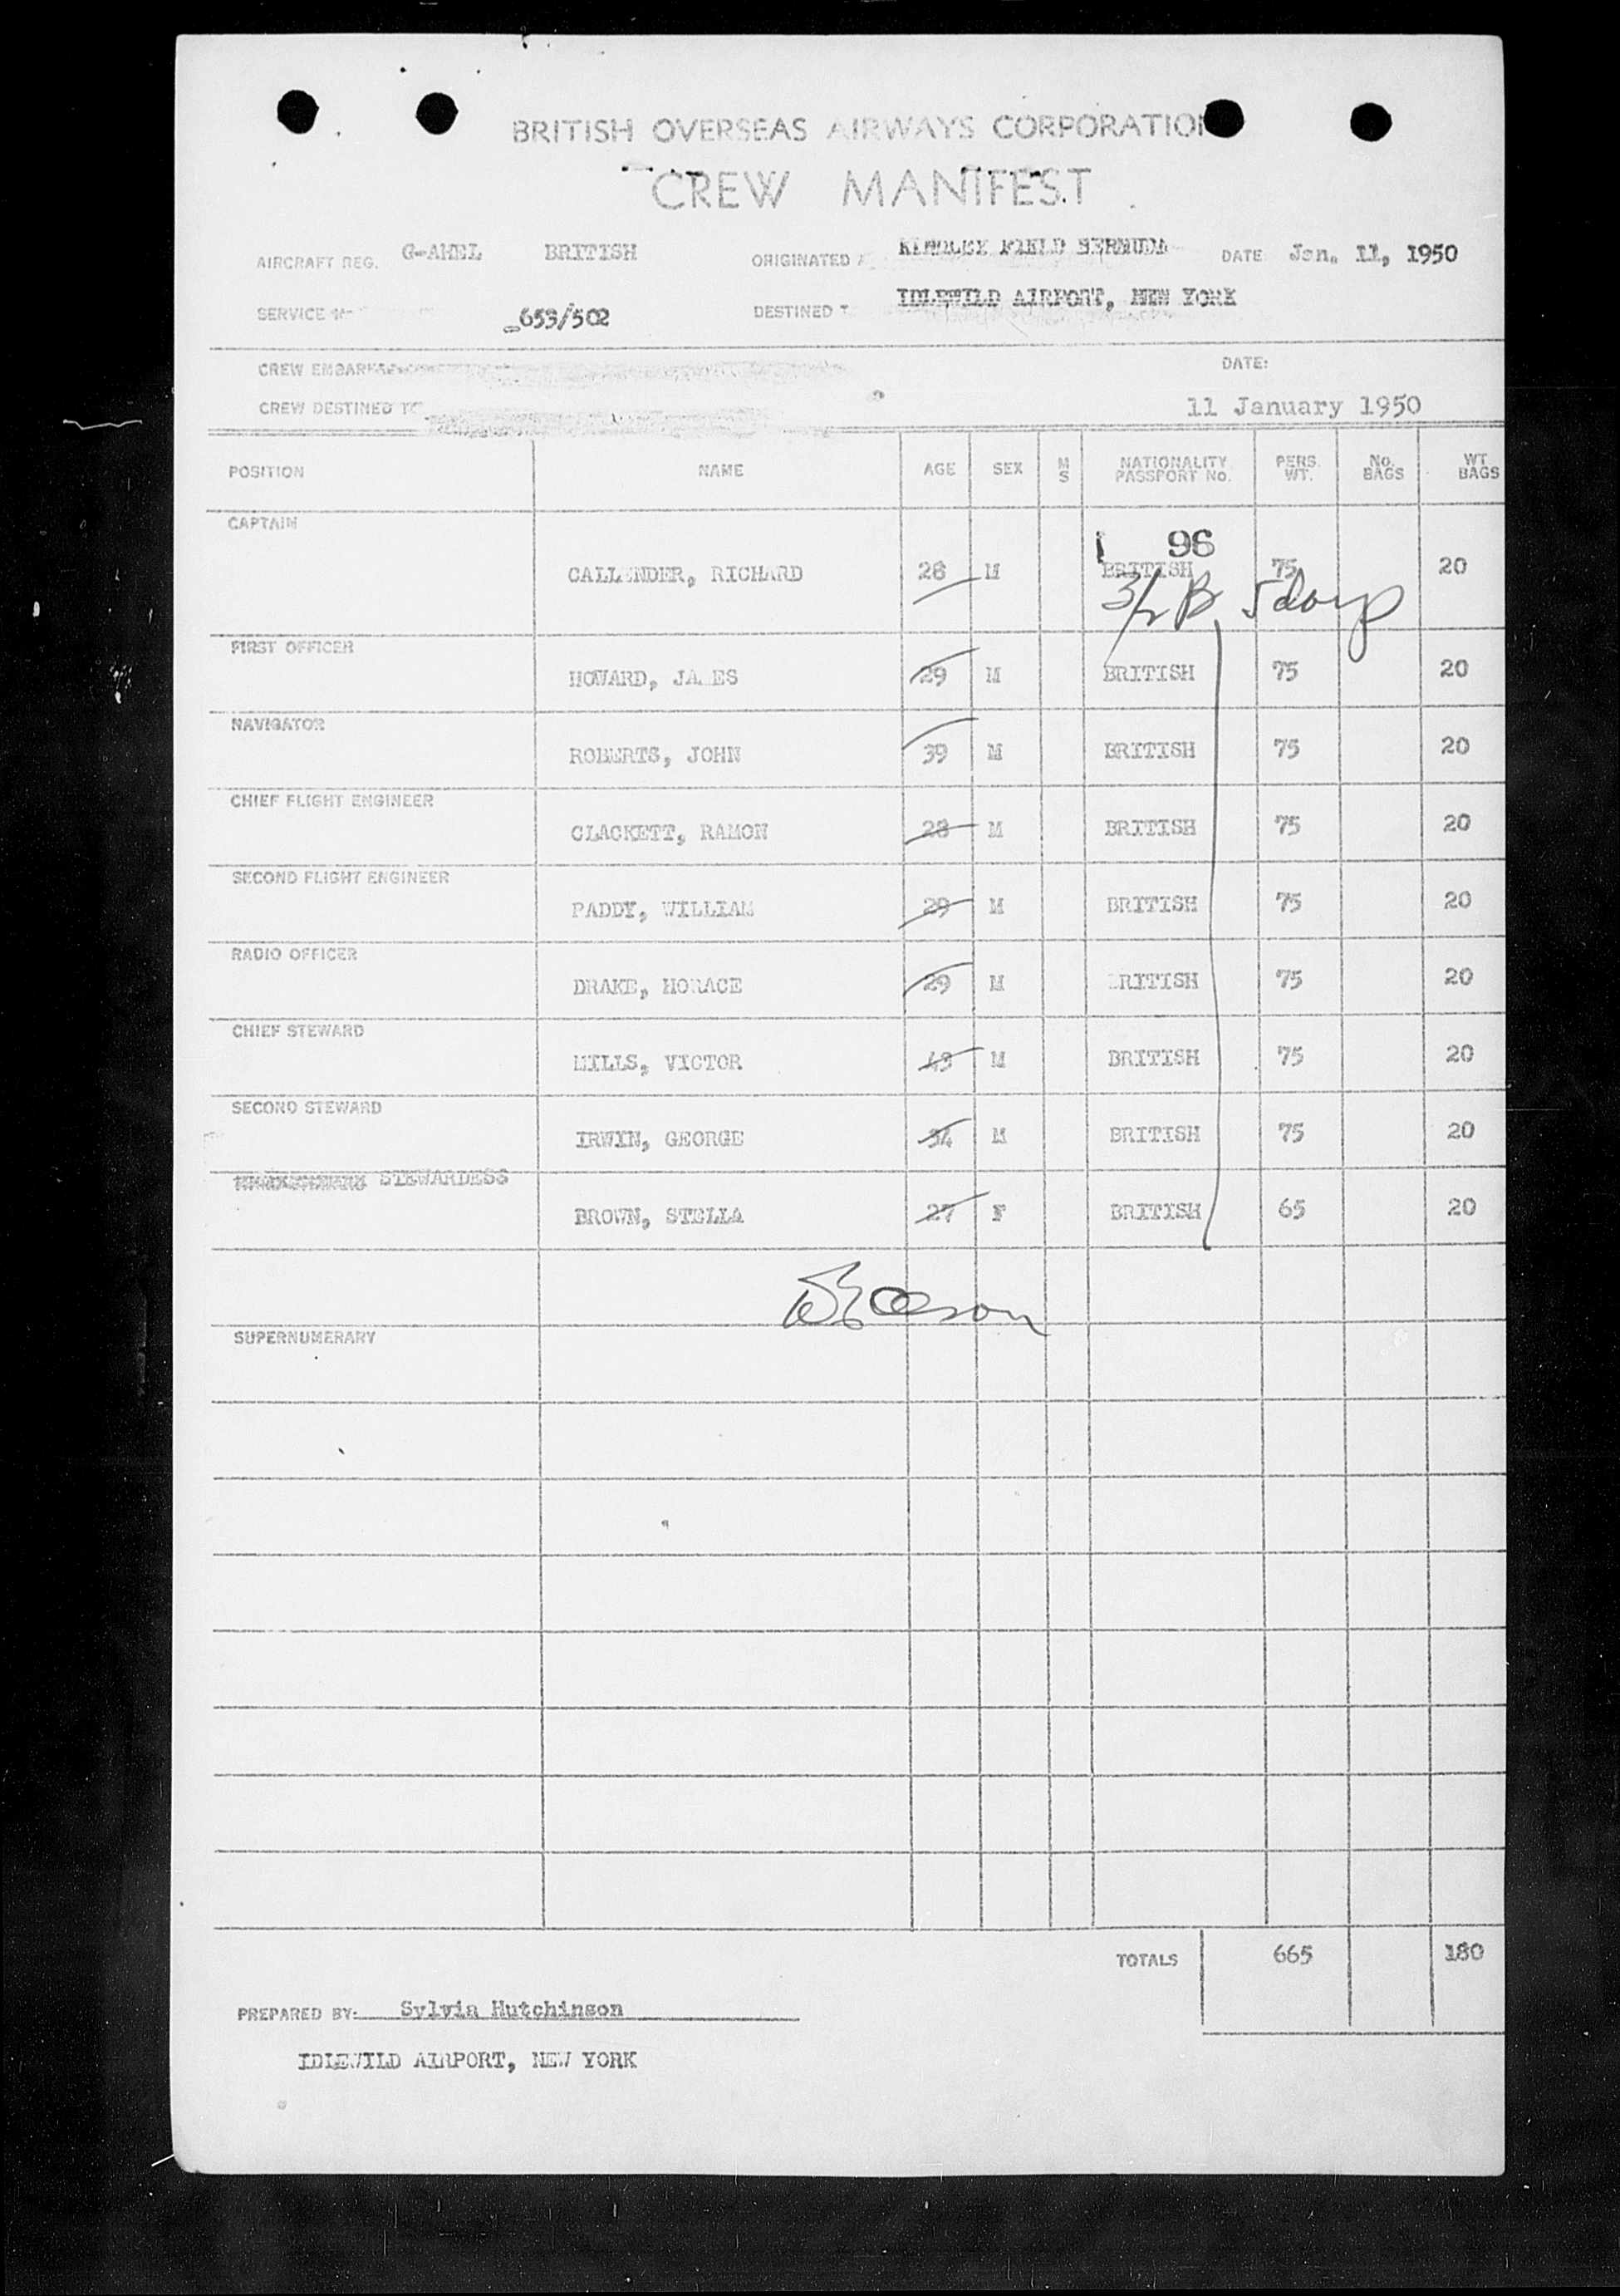 BRITISH OVERSEAS AIRWAYS CORPORATION
CREW MANIFEST
AIRCRAFT REG. BRITISH ORIGINATED DATE Jan. 11, 1950
SERVICE 653/502 DESTINED IDLEWILD AIRPORT, NEW YORK
CREW EMBARKED DATE:
CREW DESTINED TO 11 January 1950
POSITION NAME AGE SEX M S NATIONALITY PASSPORT No. PERS. WT. No. BAGS WT BAGS
CAPTAIN
1 96
CALLENDER, RICHARD 28 M BRITISH 75 20
3/2 B 5 days
FIRST OFFICER
HOWARD, JA ES 29 M BRITISH 75 20
NAVIGATOR
ROBERTS, JOHN 39 M BRITISH 75 20
CHIEF FLIGHT ENGINEER
CLACKETT, RAMON 28 M BRITISH 75 20
SECOND FLIGHT ENGINEER
PADDY, WILLIAM 29 M BRITISH 75 20
RADIO OFFICER
DRAKE, HORACE 29 M BRITISH 75 20
CHIEF STEWARD
MILLS, VICTOR 43 M BRITISH 75 20
SECOND STEWARD
IRWIN, GEORGE 34 M BRITISH 75 20
STEWARDESS
BROWN, STELLA 27 F BRITISH 65 20
SUPERNUMERARY
TOTALS 665 180
PREPARED BY: Sylvia Hutchinson
IDLEWILD AIRPORT, NEW YORK